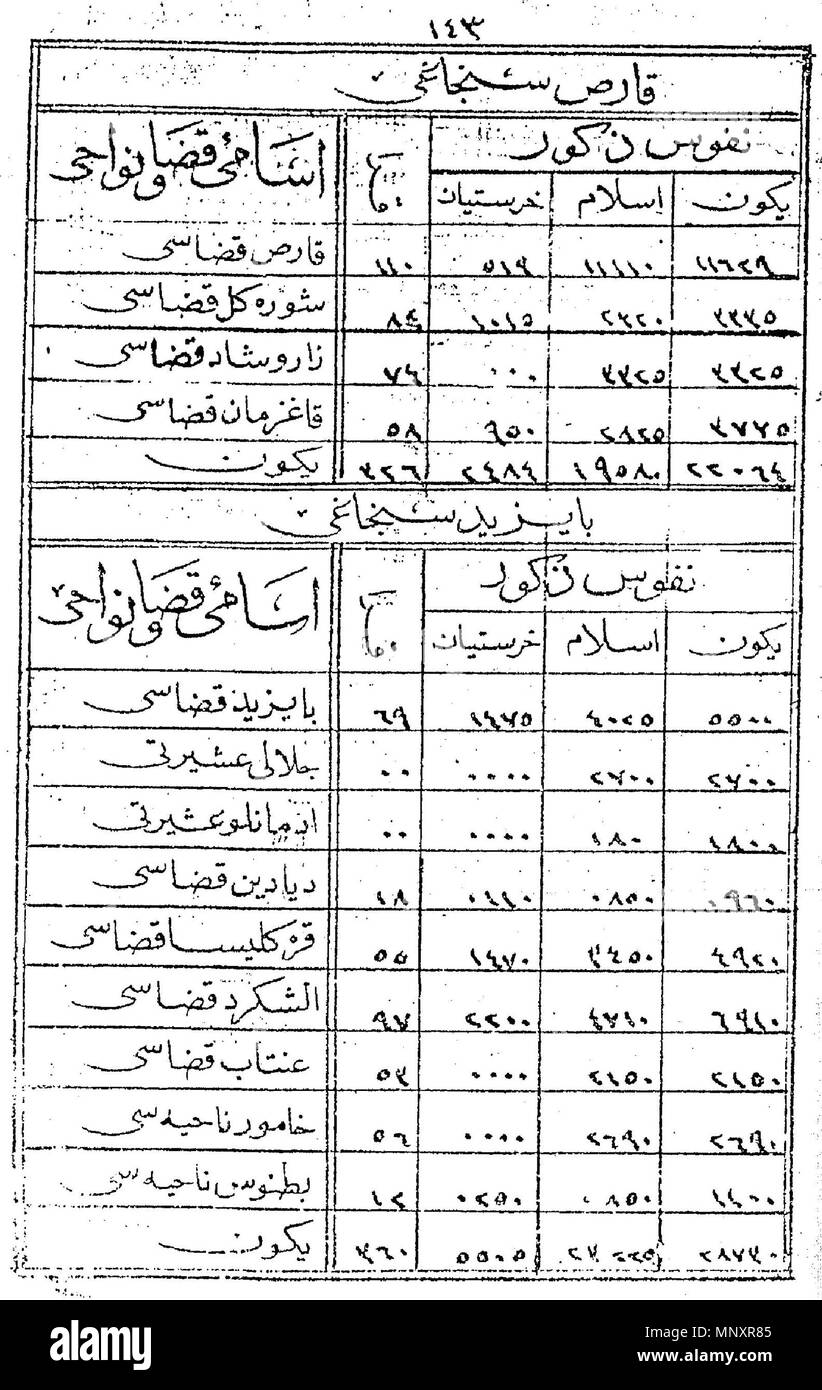 ١٤٣
قارص سنجاغی
اسامئ قضا ونواحی نفوس ذكور
خرستیان اسلام یكون
قارص قضاسی ١١٠ ٥١٩ ١١١١٠ ١١٦٢٩
شوره كل قضاسی ٨٤ ١٠١٥ ٢٣٢٠ ٣٣٣٥
زاروشاد قضاسی ٧٤ ٠٠٠ ٣٣٢٥ ٣٣٢٥
قاغزمان قضاسی ٥٨ ٩٥٠ ٢٨٢٥ ٣٧٧٥
یكون ٣٢٦ ٢٤٨٤ ١٩٥٨٠ ٢٢٠٦٤
بایزید سنجاغی
اسامئ قضا ونواحی نفوس ذكور
خرستیان اسلام یكون
بایزید قضاسی ٦٩ ١٤٧٥ ٤٠٢٥ ٥٥٠٠
جلالی عشیرتی ٠٠ ٠٠٠٠ ٢٧٠٠ ٢٧٠٠
ادمانلو عشیرتی ٠٠ ٠٠٠٠ ١٨٠ ١٨٠٠
دیادین قضاسی ١٨ ٠١١٠ ٠٨٥٠ ٠٩٦٠
قره كلیسا قضاسی ٥٥ ١٤٧٠ ٣٤٥٠ ٤٩٢٠
الشكرد قضاسی ٩٧ ٢٢٠٠ ٤٧١٠ ٦٩١٠
عنتاب قضاسی ٥٣ ٠٠٠٠ ٢١٥٠ ٢١٥٠
خامور ناحیه سی ٥٦ ٠٠٠٠ ٢٦٩٠ ٢٦٩٠
بطنوس ناحیه سی ١٢ ٠٢٥٠ ٠٨٥٠ ١١٠٠
یكون ٣٦٠ ٥٥٠٥ ٢٨٧٣٠
alamy
Image ID: MNXR85
www.alamy.com